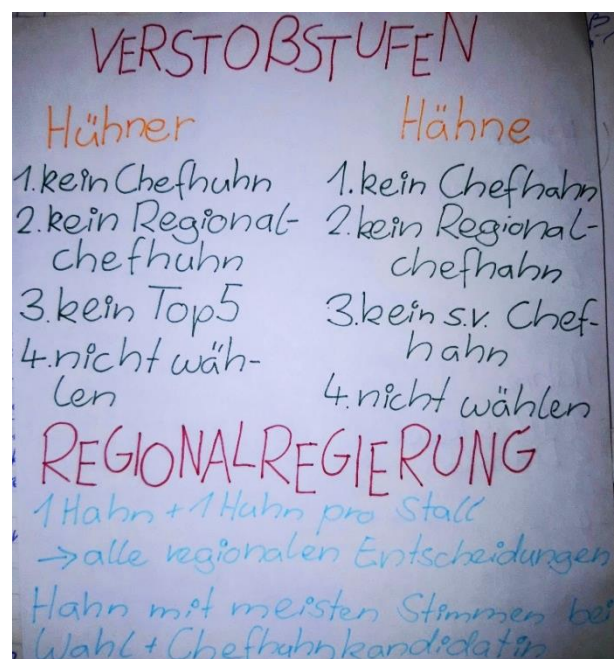 VERSTOßSTUFEN
Hühner
1. kein Chefhuhn
2. kein Regional-
chefhuhn
3. kein Top5
4. nicht wäh-
len
Hähne
1. kein Chefhahn
2. kein Regional-
chefhahn
3. kein s.v. Chef-
hahn
4. nicht wählen
REGIONALREGIERUNG
1 Hahn + 1 Huhn pro Stall
→ alle regionalen Entscheidungen
Hahn mit meisten Stimmen bei
Wahl + Chefhuhnkandidatin